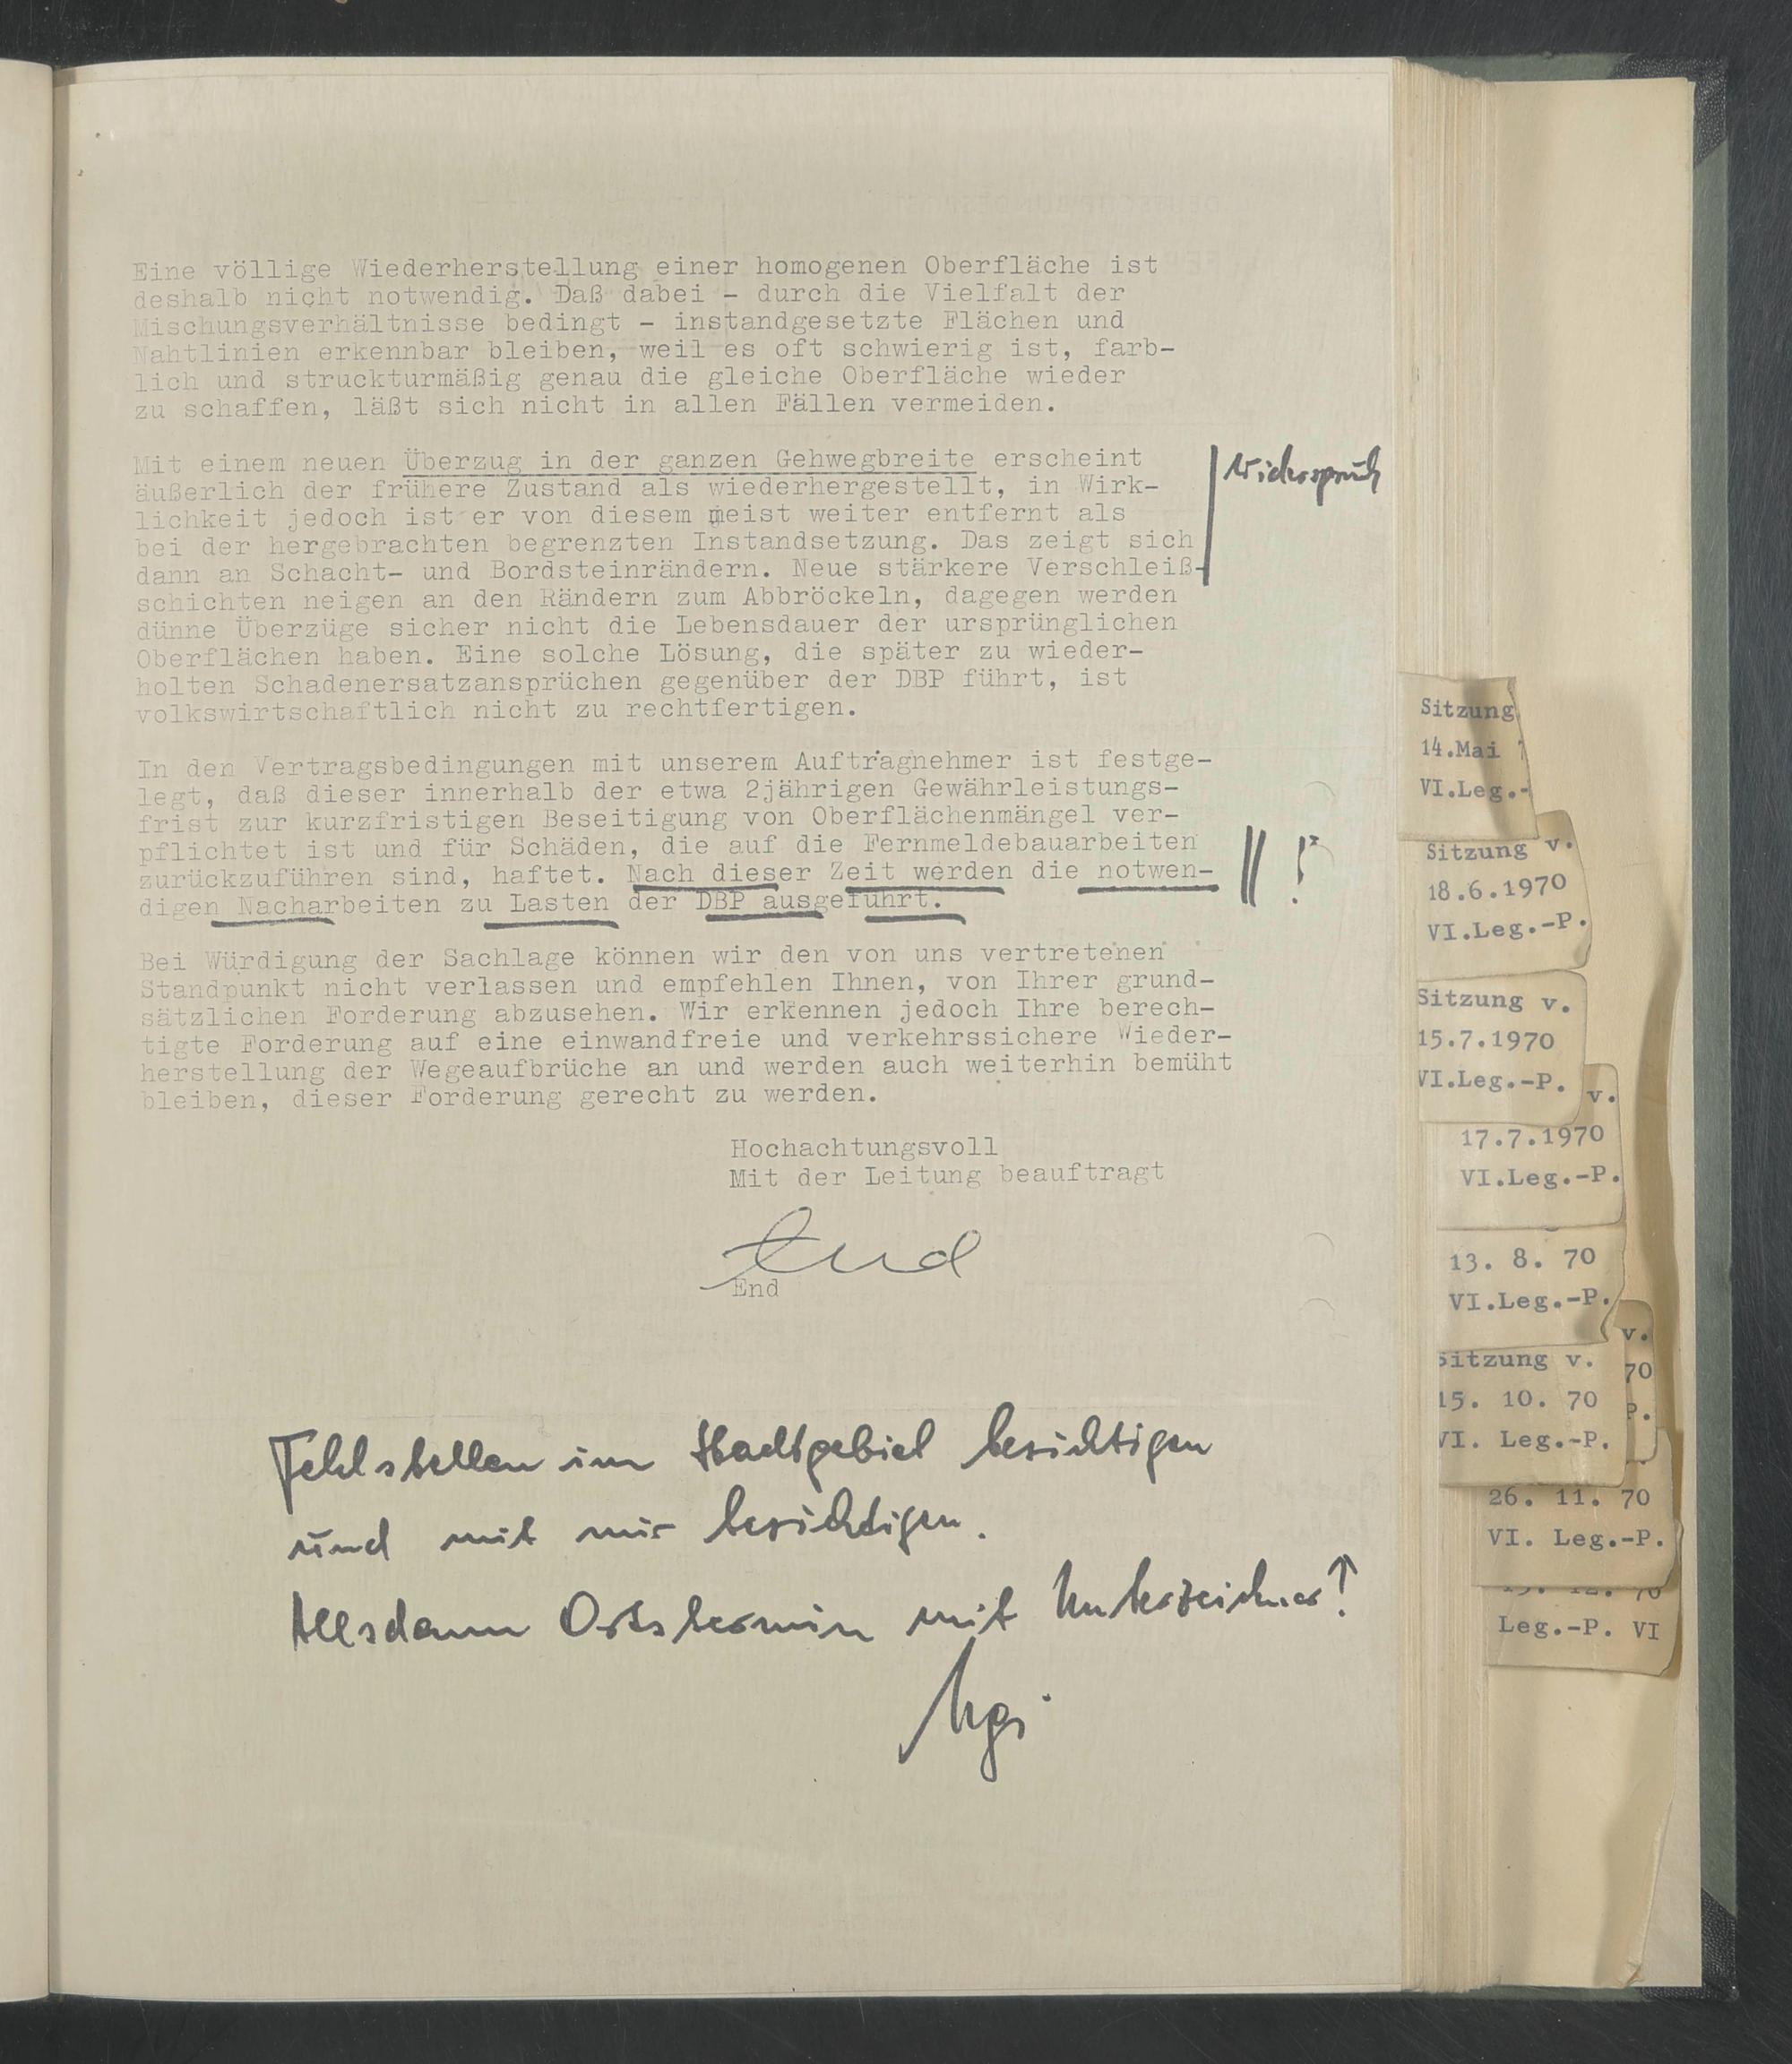 Eine völlige Wiederherstellung einer homogenen Oberfläche ist
deshalb nicht notwendig. Daß dabei - durch die Vielfalt der
Mischungsverhältnisse bedingt - instandgesetzte Flächen und
Nahtlinien erkennbar bleiben, weil es oft schwierig ist, farb-
lich und struckturmäßig genau die gleiche Oberfläche wieder
zu schaffen, läßt sich nicht in allen Fällen vermeiden.
Mit einem neuen Überzug in der ganzen Gehwegbreite erscheint
äußerlich der frühere Zustand als wiederhergestellt, in Wirk-
lichkeit jedoch ist er von diesem meist weiter entfernt als
bei der hergebrachten begrenzten Instandsetzung. Das zeigt sich
dann an Schacht- und Bordsteinrändern. Neue stärkere Verschleiß-
schichten neigen an den Rändern zum Abbröckeln, dagegen werden
dünne Überzüge sicher nicht die Lebensdauer der ursprünglichen
Oberflächen haben. Eine solche Lösung, die später zu wieder-
holten Schadenersatzansprüchen gegenüber der DBP führt, ist
volkswirtschaftlich nicht zu rechtfertigen.
Widerspruch
In den Vertragsbedingungen mit unserem Auftragnehmer ist festge-
legt, daß dieser innerhalb der etwa 2jährigen Gewährleistungs-
frist zur kurzfristigen Beseitigung von Oberflächenmängel ver-
pflichtet ist und für Schäden, die auf die Fernmeldebauarbeiten
zurückzuführen sind, haftet. Nach dieser Zeit werden die notwen-
digen Nacharbeiten zu Lasten der DBP ausgeführt.
!
Bei Würdigung der Sachlage können wir den von uns vertretenen
Standpunkt nicht verlassen und empfehlen Ihnen, von Ihrer grund-
sätzlichen Forderung abzusehen. Wir erkennen jedoch Ihre berech-
tigte Forderung auf eine einwandfreie und verkehrssichere Wieder-
herstellung der Wegeaufbrüche an und werden auch weiterhin bemüht
bleiben, dieser Forderung gerecht zu werden.
Hochachtungsvoll
Mit der Leitung beauftragt
End
End
Fehlstellen im Stadtgebiet besichtigen
und mit mir besichtigen.
Allsdann Ortstermin mit Unterzeichner!
Sitzung
14.Mai
VI.Leg.-
Sitzung v.
18.6.1970
VI.Leg.-P.
Sitzung v.
15.7.1970
VI.Leg.-P.
v.
17.7.1970
VI.Leg.-P.
13. 8. 70
VI.Leg.-P.
v.
70
P.
Sitzung v.
15. 10. 70
VI. Leg.-P.
26. 11. 70
VI. Leg.-P.
Leg.-P. VI